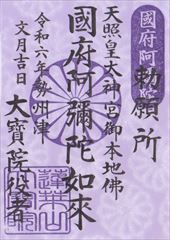 國府阿彌陀
勅願所
天照皇太神宮御本地佛
國府阿彌陀如來
令和六年勢州津
文月吉日
大寶院役者
蓮華山